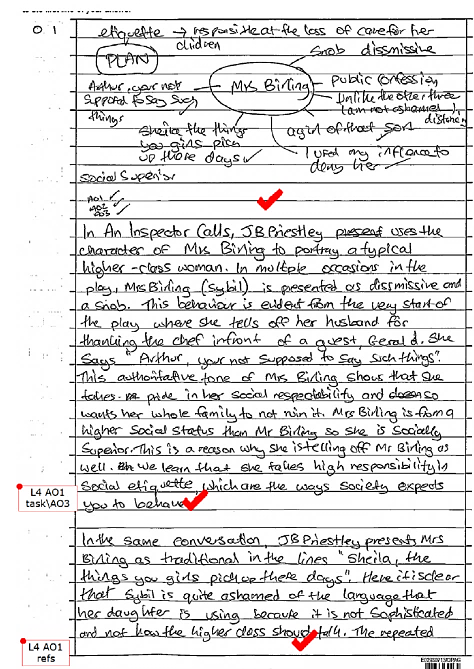 0 1
etiquette → responsible at the loss of care for her
children
PLAN
snob dismissive
Mrs Birling
Arthur, your not
supposed to say such
things
public confession
unlike the other three
I am not ashamed
Sheila the things
you girls pick
up these days
a girl of that sort
I used my influence to
deny her
Social Superior
AO1
AO2
AO3
In An Inspector Calls, JB Priestley present uses the
character of Mrs Birling to portray a typical
higher-class woman. In multiple occasions in the
play, Mrs Birling (Sybil) is presented as dismissive and
a snob. This behaviour is evident from the very start of
the play where she tells off her husband for
thanking the chef infront of a guest, Gerald. She
says "Arthur, your not supposed to say such things".
This authoritative tone of Mrs Birling shows that she
takes pride in her social respectability and
wants her whole family to not ruin it. Mrs Birling is from a
higher social status than Mr Birling so she is socially
superior. This is a reason why she is telling off Mr Birling as
well. we learn that she takes high responsibility in
L4 AO1
task\AO3
social etiquette, which are the ways society expects
you to behave.
In the same conversation, JB Priestley presents Mrs
Birling as traditional in the lines "Sheila, the
things you girls pick up these days". Here it is clear
that Sybil is quite ashamed of the language that
her daughter is using because it is not sophisticated
and not how the higher class should talk. The repeated
L4 AO1
refs